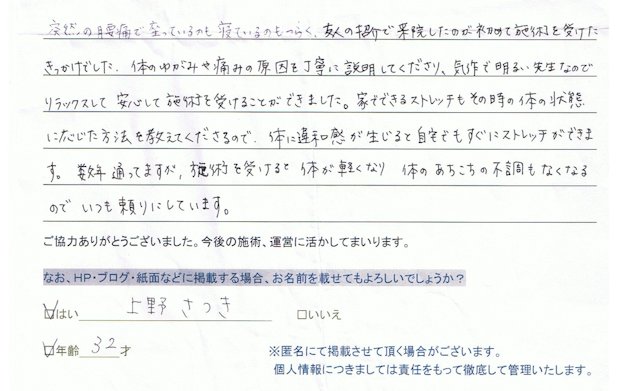 突然の腰痛で座っているのも寝ているのもつらく、友人の紹介で来院したのが初めて施術を受けた
きっかけでした。体のゆがみや痛みの原因も丁寧に説明してくださり、気作で明るい先生なので
リラックスして安心して施術を受けることができました。家でできるストレッチもその時の体の状態
に応じた方法を教えてくださるので、体に違和感が生じると自宅でもすぐにストレッチができま
す。数年通ってますが、施術を受けると体が軽くなり 体のあちこちの不調もなくなる
ので いつも頼りにしています。
ご協力ありがとうございました。今後の施術、運営に活かしてまいります。
なお、HP・ブログ・紙面などに掲載する場合、お名前を載せてもよろしいでしょうか？
☑はい 上野 さつき □いいえ
☑年齢 32 才 ※匿名にて掲載させて頂く場合がございます。
個人情報につきましては責任をもって徹底して管理いたします。